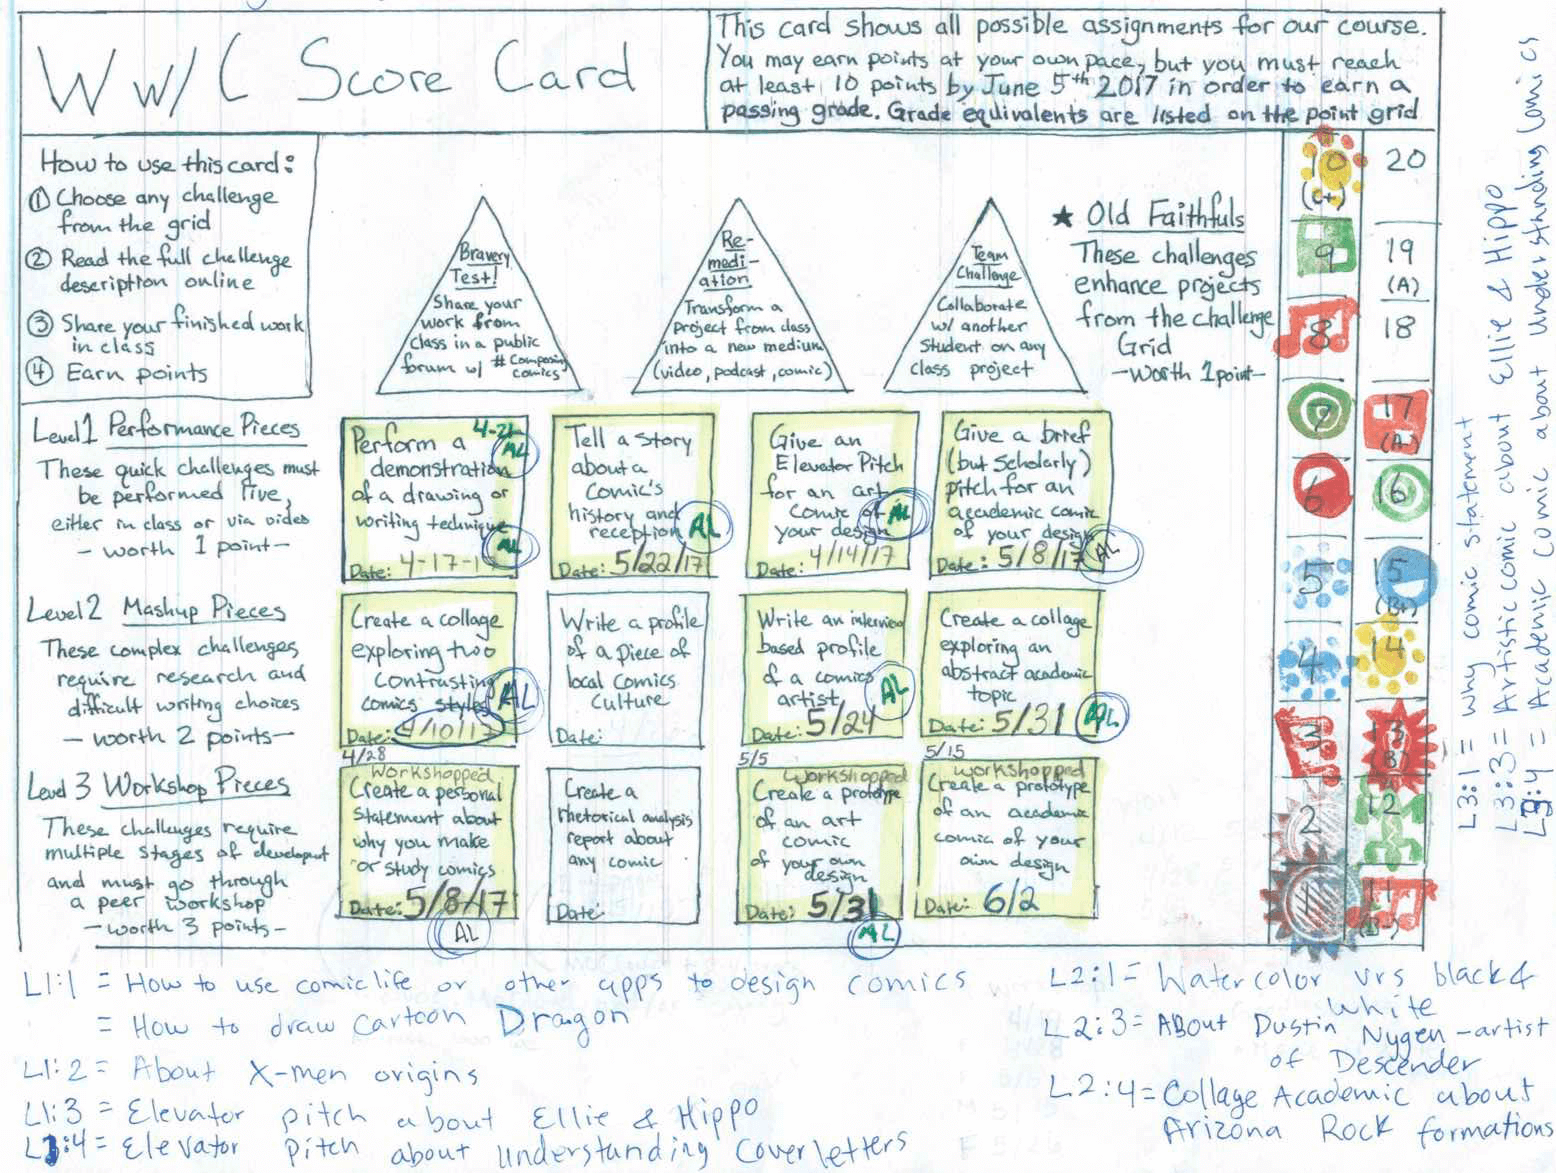 W w/ C Score Card
This card shows all possible assignments for our course.
You may earn points at your own pace, but you must reach
at least 10 points by June 5th 2017 in order to earn a
passing grade. Grade equivalents are listed on the point grid
How to use this card:
① Choose any challenge
from the grid
② Read the full challenge
description online
③ Share your finished work
in class
④ Earn points
Bravery
Test!
Share your
work from
class in a public
forum w/ #Composing
Comics
Re-
medi-
ation
Transform a
project from class
into a new medium
(video, podcast, comic)
Team
Challenge
Collaborate
w/ another
student on any
class project
★ Old Faithfuls
These challenges
enhance projects
from the challenge
Grid
-Worth 1 point-
Level 1 Performance Pieces
These quick challenges must
be performed live,
either in class or via video
- worth 1 point -
4-21
AL
Perform a
demonstration
of a drawing or
writing technique
AL
Date: 4-17-1
Tell a story
about a
Comic's
history and
reception
AL
Date: 5/22/17
Give an
Elevator Pitch
for an art
Comic of
your design
AL
Date: 4/14/17
Give a brief
(but scholarly)
pitch for an
academic comic
of your design
AL
Date: 5/8/17
Level 2 Mashup Pieces
These complex challenges
require research and
difficult writing choices
- worth 2 points -
Create a collage
exploring two
contrasting
comics styles
AL
Date: 4/10/17
Write a profile
of a piece of
local comics
culture
Date:
Write an interview
based profile
of a comics
artist
AL
Date: 5/24
Create a collage
exploring an
abstract academic
topic
AL
Date: 5/31
Level 3 Workshop Pieces
These challenges require
multiple stages of developmt
and must go through
a peer workshop
- worth 3 points -
4/28
Workshopped
Create a personal
statement about
why you make
or study comics
Date: 5/8/17
AL
Create a
rhetorical analysis
report about
any comic
Date:
5/5
Workshopped
Create a prototype
of an art
comic
of your own
design
Date: 5/31
AL
5/15
workshopped
Create a prototype
of an academic
comic of your
own design
Date: 6/2
10 20
(C+)
9 19
(A)
8 18
7 17
(A-)
6 16
5 15
(B+)
4 14
3 13
(B)
2 12
1 11
(B-)
L3:1 = Why comic statement
L3:3 = Artistic comic about Ellie & Hippo
L3:4 = Academic comic about Understanding Comics
L1:1 = How to use comic life or other apps to design comics
= How to draw Cartoon Dragon
L1:2 = About X-men origins
L1:3 = Elevator pitch about Ellie & Hippo
L1:4 = Elevator pitch about understanding Coverletters
L2:1 = Watercolor vrs black &
white
L2:3 = ABout Dustin Nygen - artist
of Descender
L2:4 = Collage Academic about
Arizona Rock formations